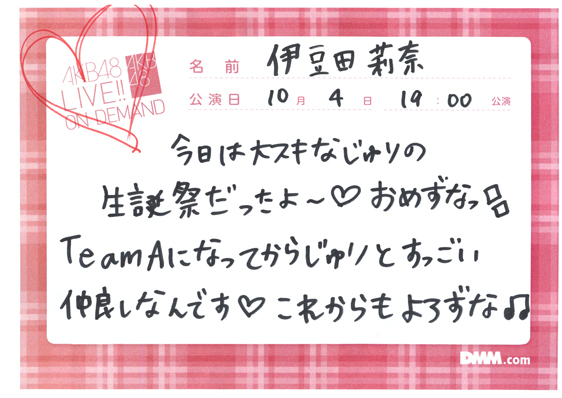 AKB48
LIVE!!
ON DEMAND
AKB
48
名前 伊豆田莉奈
公演日 10月4日 19:00公演
今日は大スキなじゅりの
生誕祭だったよ〜♡おめずなっ
TeamAになってからじゅりとすっごい
仲良しなんです♡これからもよろずな♫
DMM.com